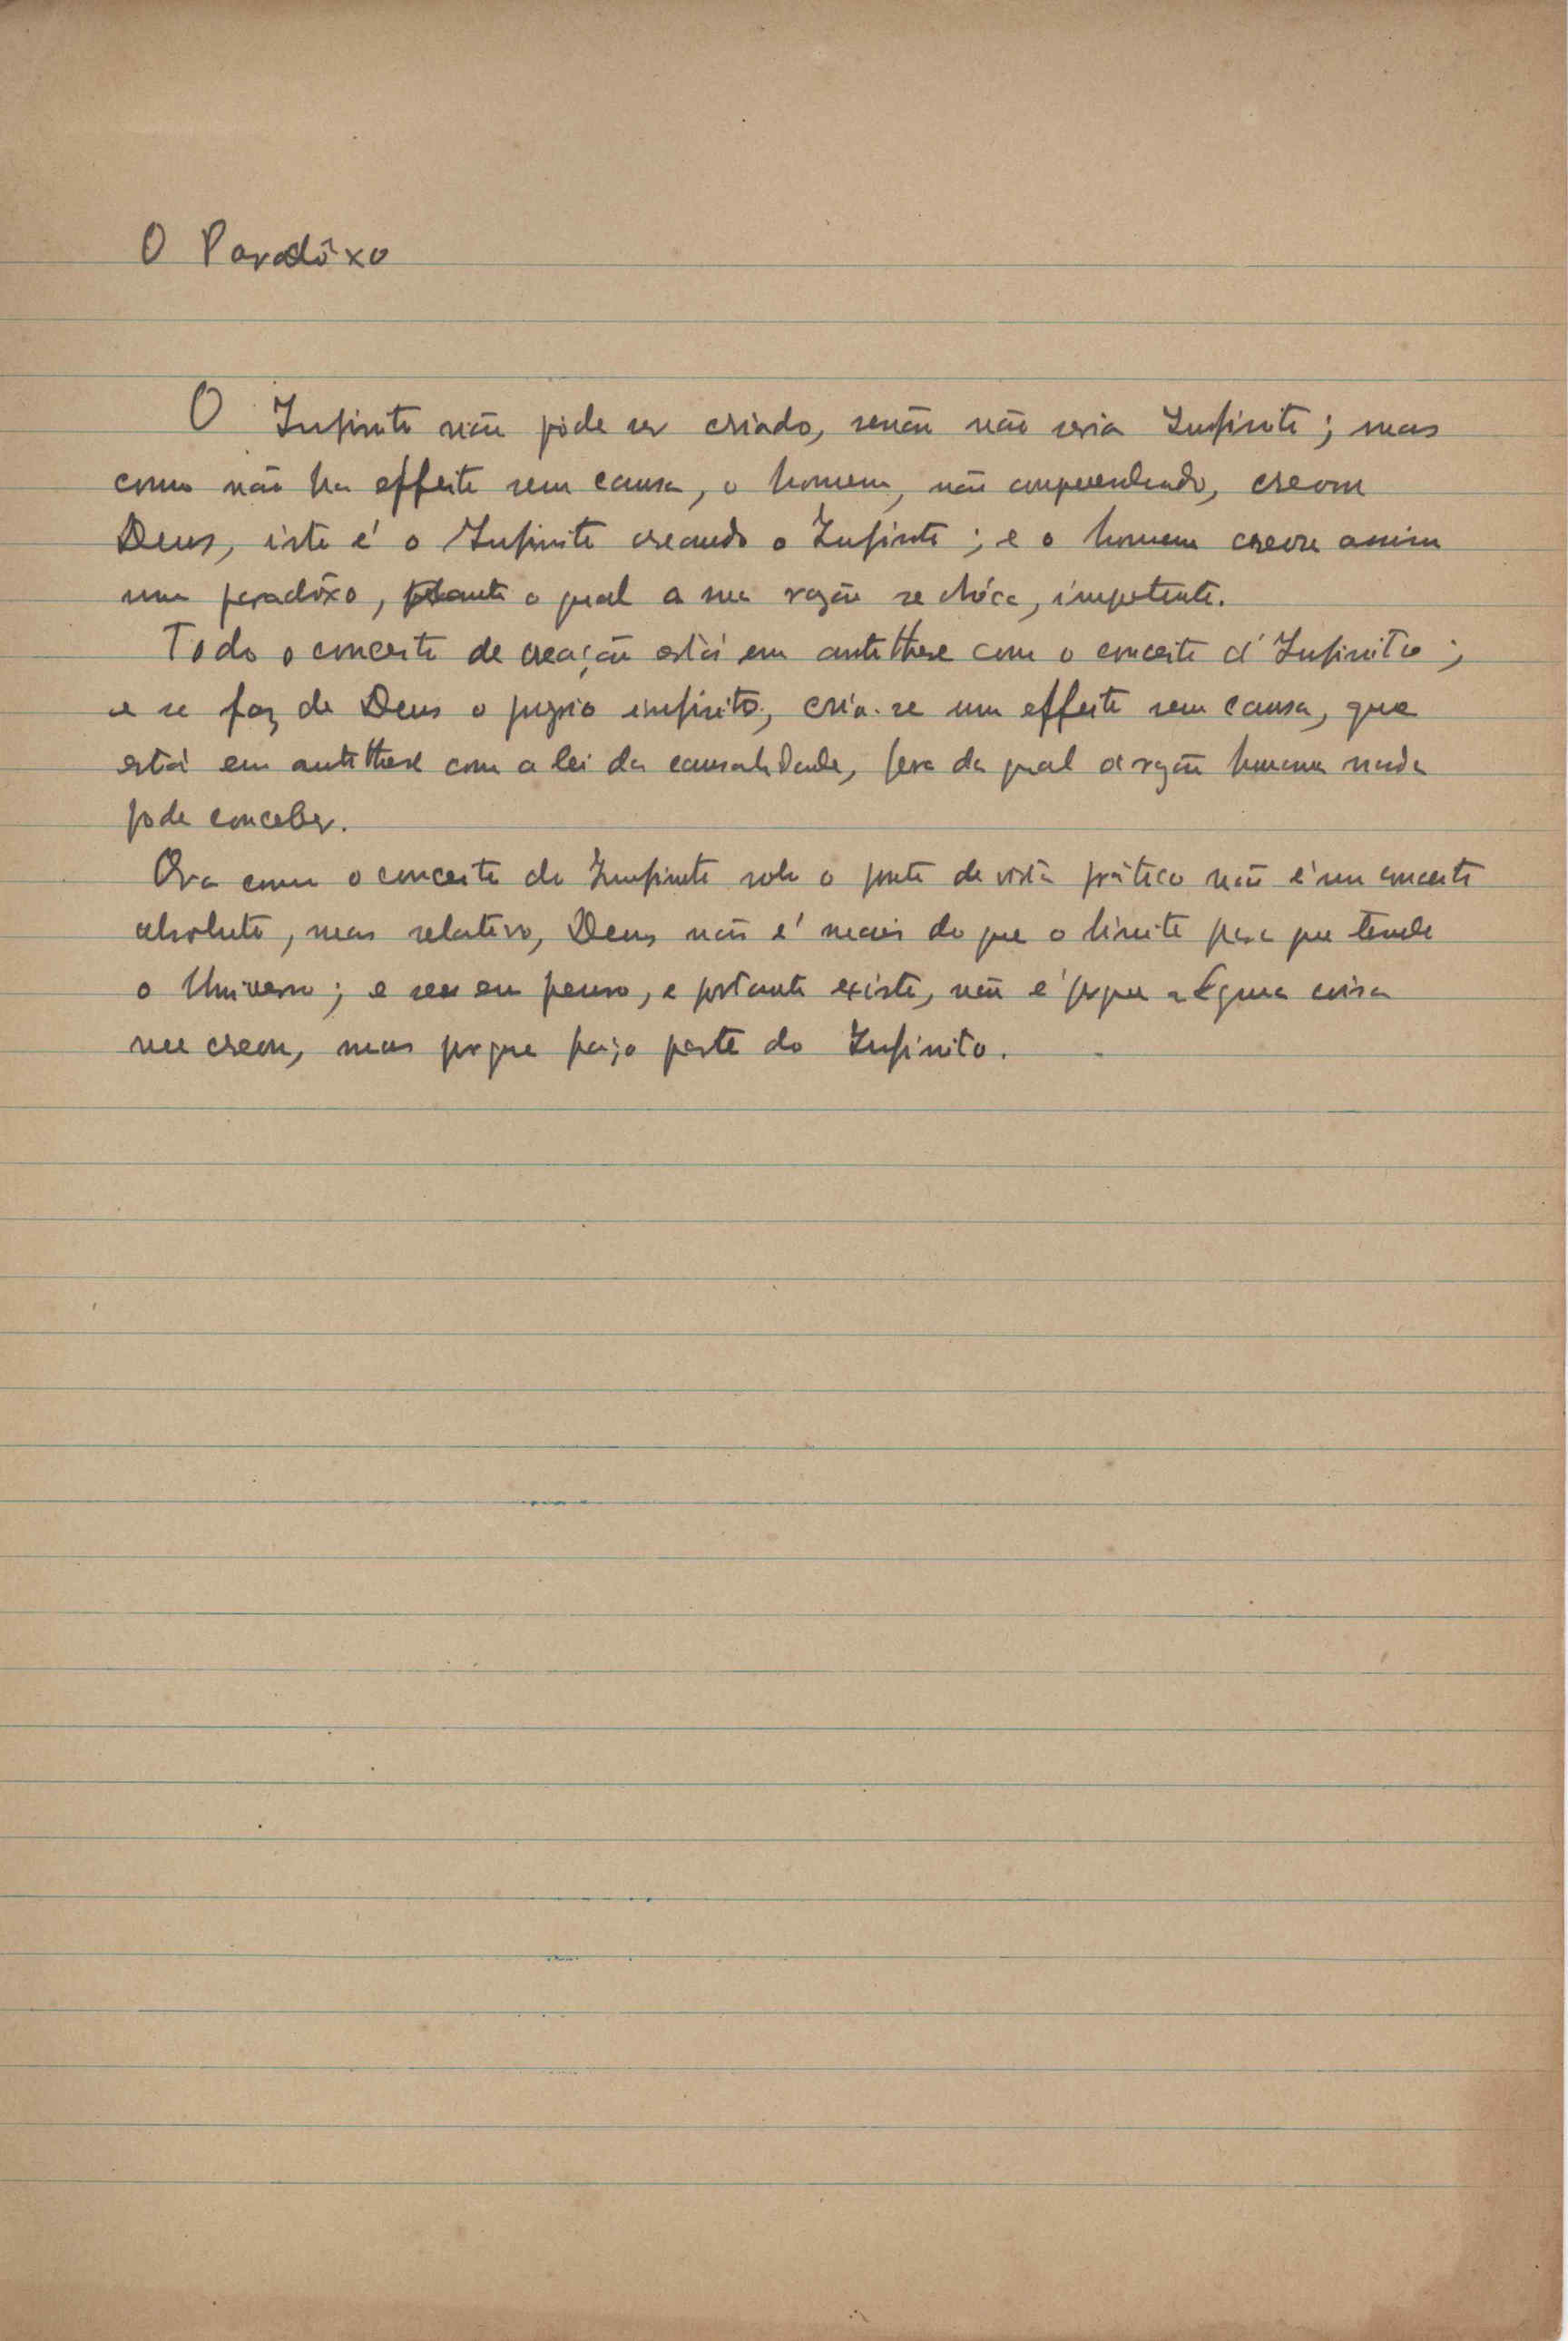 O Paradôxo
O Infinito não póde ser criado, senão não seria Infinito; mas
como não ha effeito sem causa, o homem, não comprehendendo, creou
Deus, isto é o Infinito creando o Infinito; e o homem creou assim
um paradôxo, perante o qual a sua razão se chóca, impotente.
Todo o conceito de creação está em antithese com o conceito d'Infinito;
e se faz de Deus o proprio infinito, cria-se um effeito sem causa, que
está em antithese com a lei da causalidade, fora da qual a razão humana nada
pode conceber.
Ora como o conceito de Infinito sob o ponto de vista prático não é um conceito
absoluto, mas relativo, Deus não é mais do que o limite para que tende
o Universo; e se eu penso, e portanto existo, não é porque alguma coisa
me creou, mas porque faço parte do Infinito.